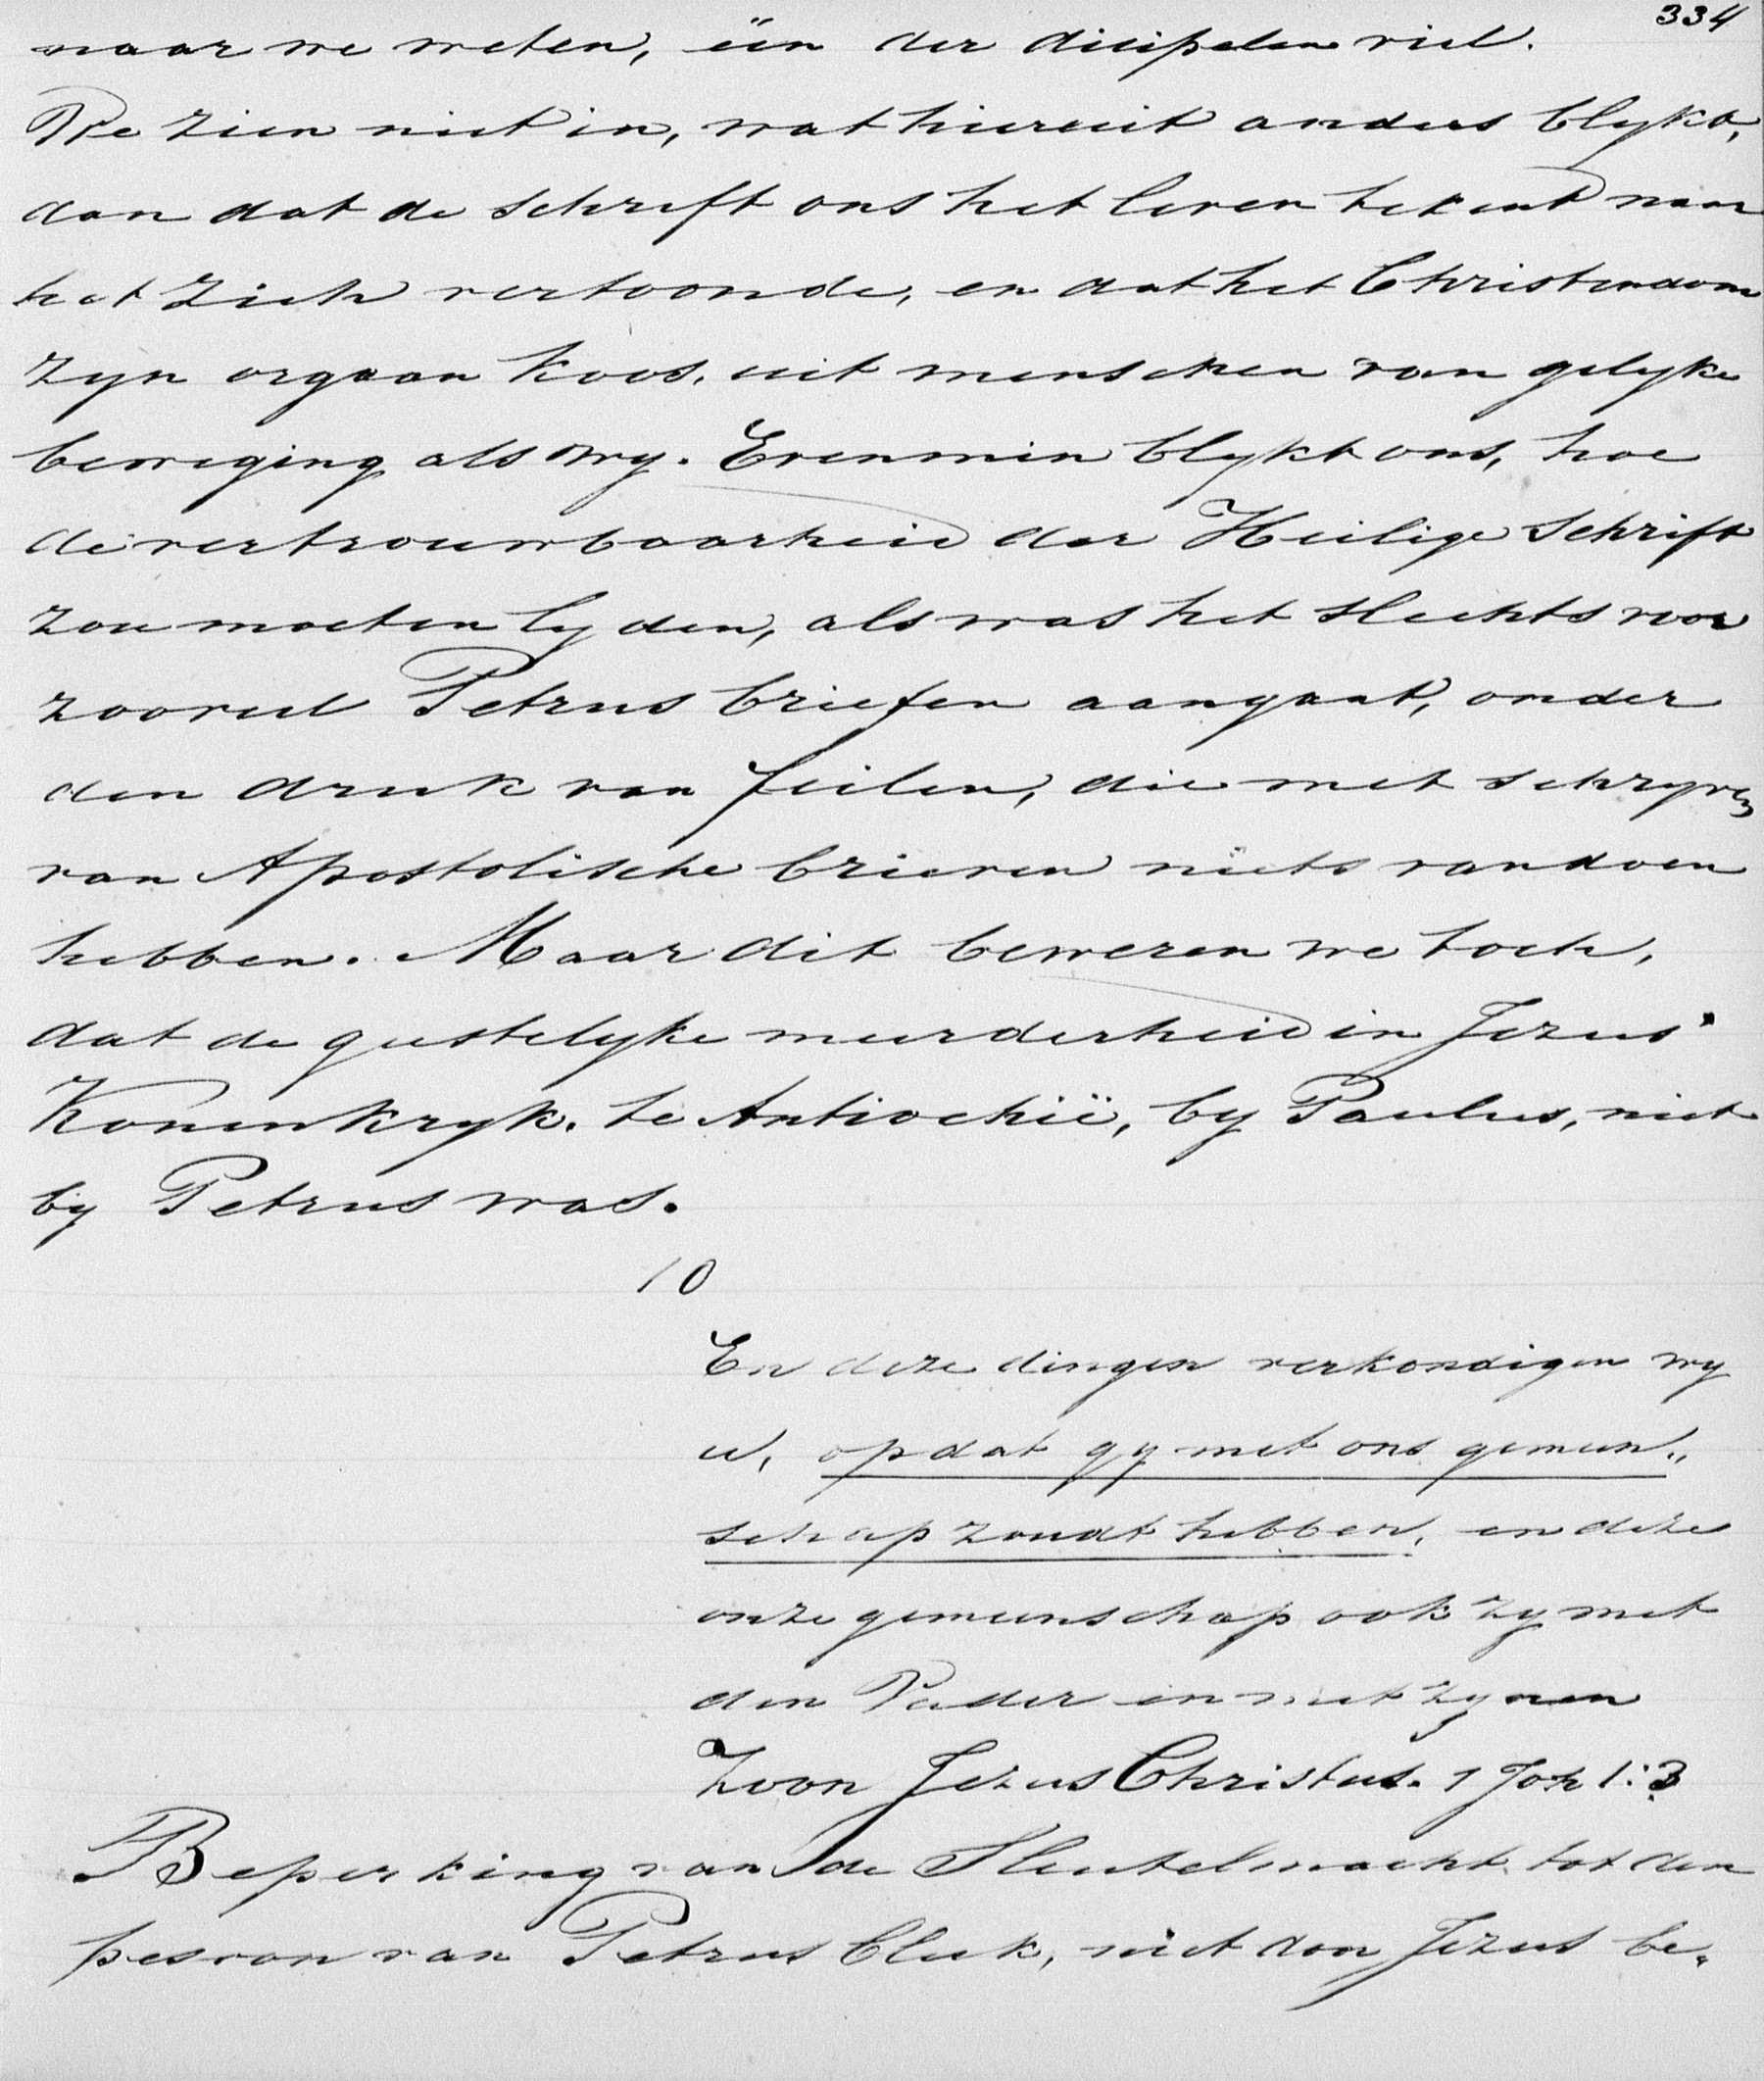 334
naar we weten, één der discipelen viel.
We zien niet in, wat hieruit anders blykt,
dan dat de Schrift ons het leven tekent naar
het zich vertoonde, en dat het Christendom
zyn orgaan koos, uit menschen van gelyke
beweging als wy. Evenmin blykt ons, hoe
de vertrouwbaarheid der Heilige Schrift
zou moeten lyden, als was het slechts voor
zooveel Petrus briefen aangaat, onder
den druk van feilen, die met schryven
van Apostolische brieven niets vandoen
hebben. Maar dit beweren we toch,
dat de geestelyke meerderheid in Jezus'
Koninkryk, te Antiochië, by Paulus, niet
by Petrus was.
10
En deze dingen verkondigen wy
u, opdat gy met ons gemeen„
schap zoudt hebben, en deze
onze gemeenschap ook zy met
den Vader en met zynen
Zoon Jezus Christus. 1 Joh 1:3
Beperking van de Sleutelmacht tot den
pesoon van Petrus bleek, niet door Jezus be„